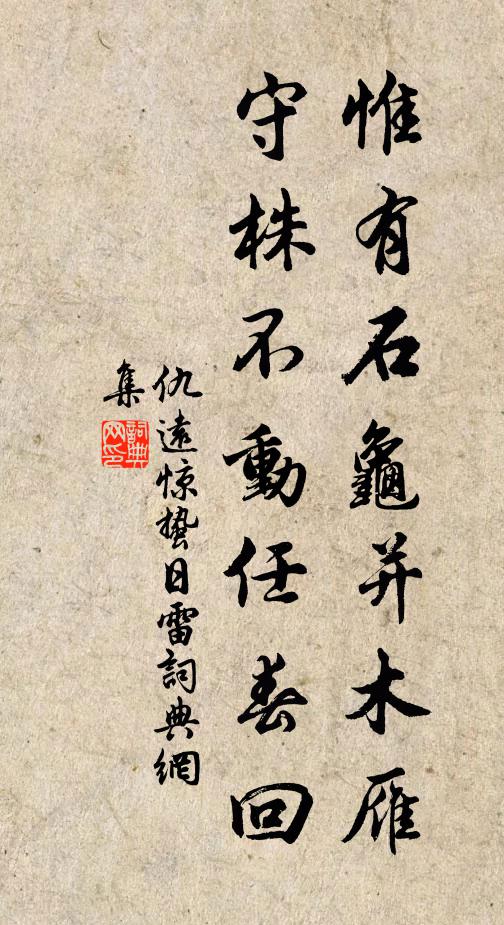 惟有石龜并木雁
守株不動任春回
仇遠惊蟄日雷詞典網
集
詞典
网印